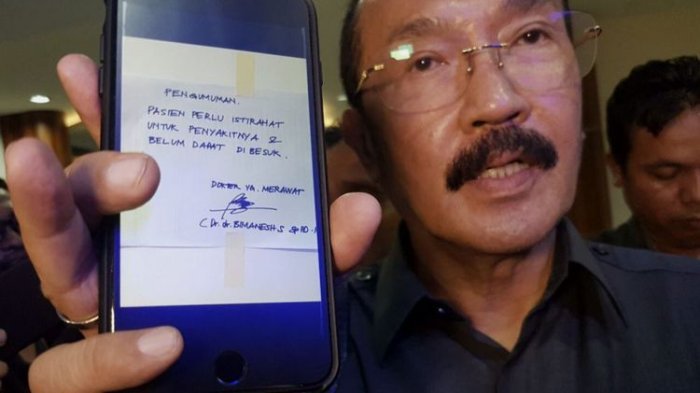 PENGUMUMAN.
PASIEN PERLU ISTIRAHAT
UNTUK PENYAKITNYA &
BELUM DAPAT DI BESUK.
DOKTER YG. MERAWAT
( Dr. dr. BIMANESH S SpPD -